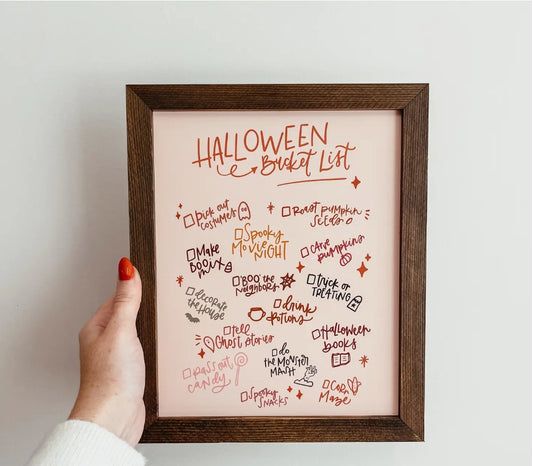 HALLOWEEN
Bucket List
Pick out
costumes
Roast pumpkin
seeds
Spooky
Movie
NIGHT
Make
BOOix
Mix
Carve
pumpkins
"BOO" the
Neighbors
trick or
TREATING
decorate
the House
drink
Potions
tell
Ghost stories
Halloween
books
do
the MONSTER
MASH
pass out
candy
Spooky
SNACKS
Corn
Maze